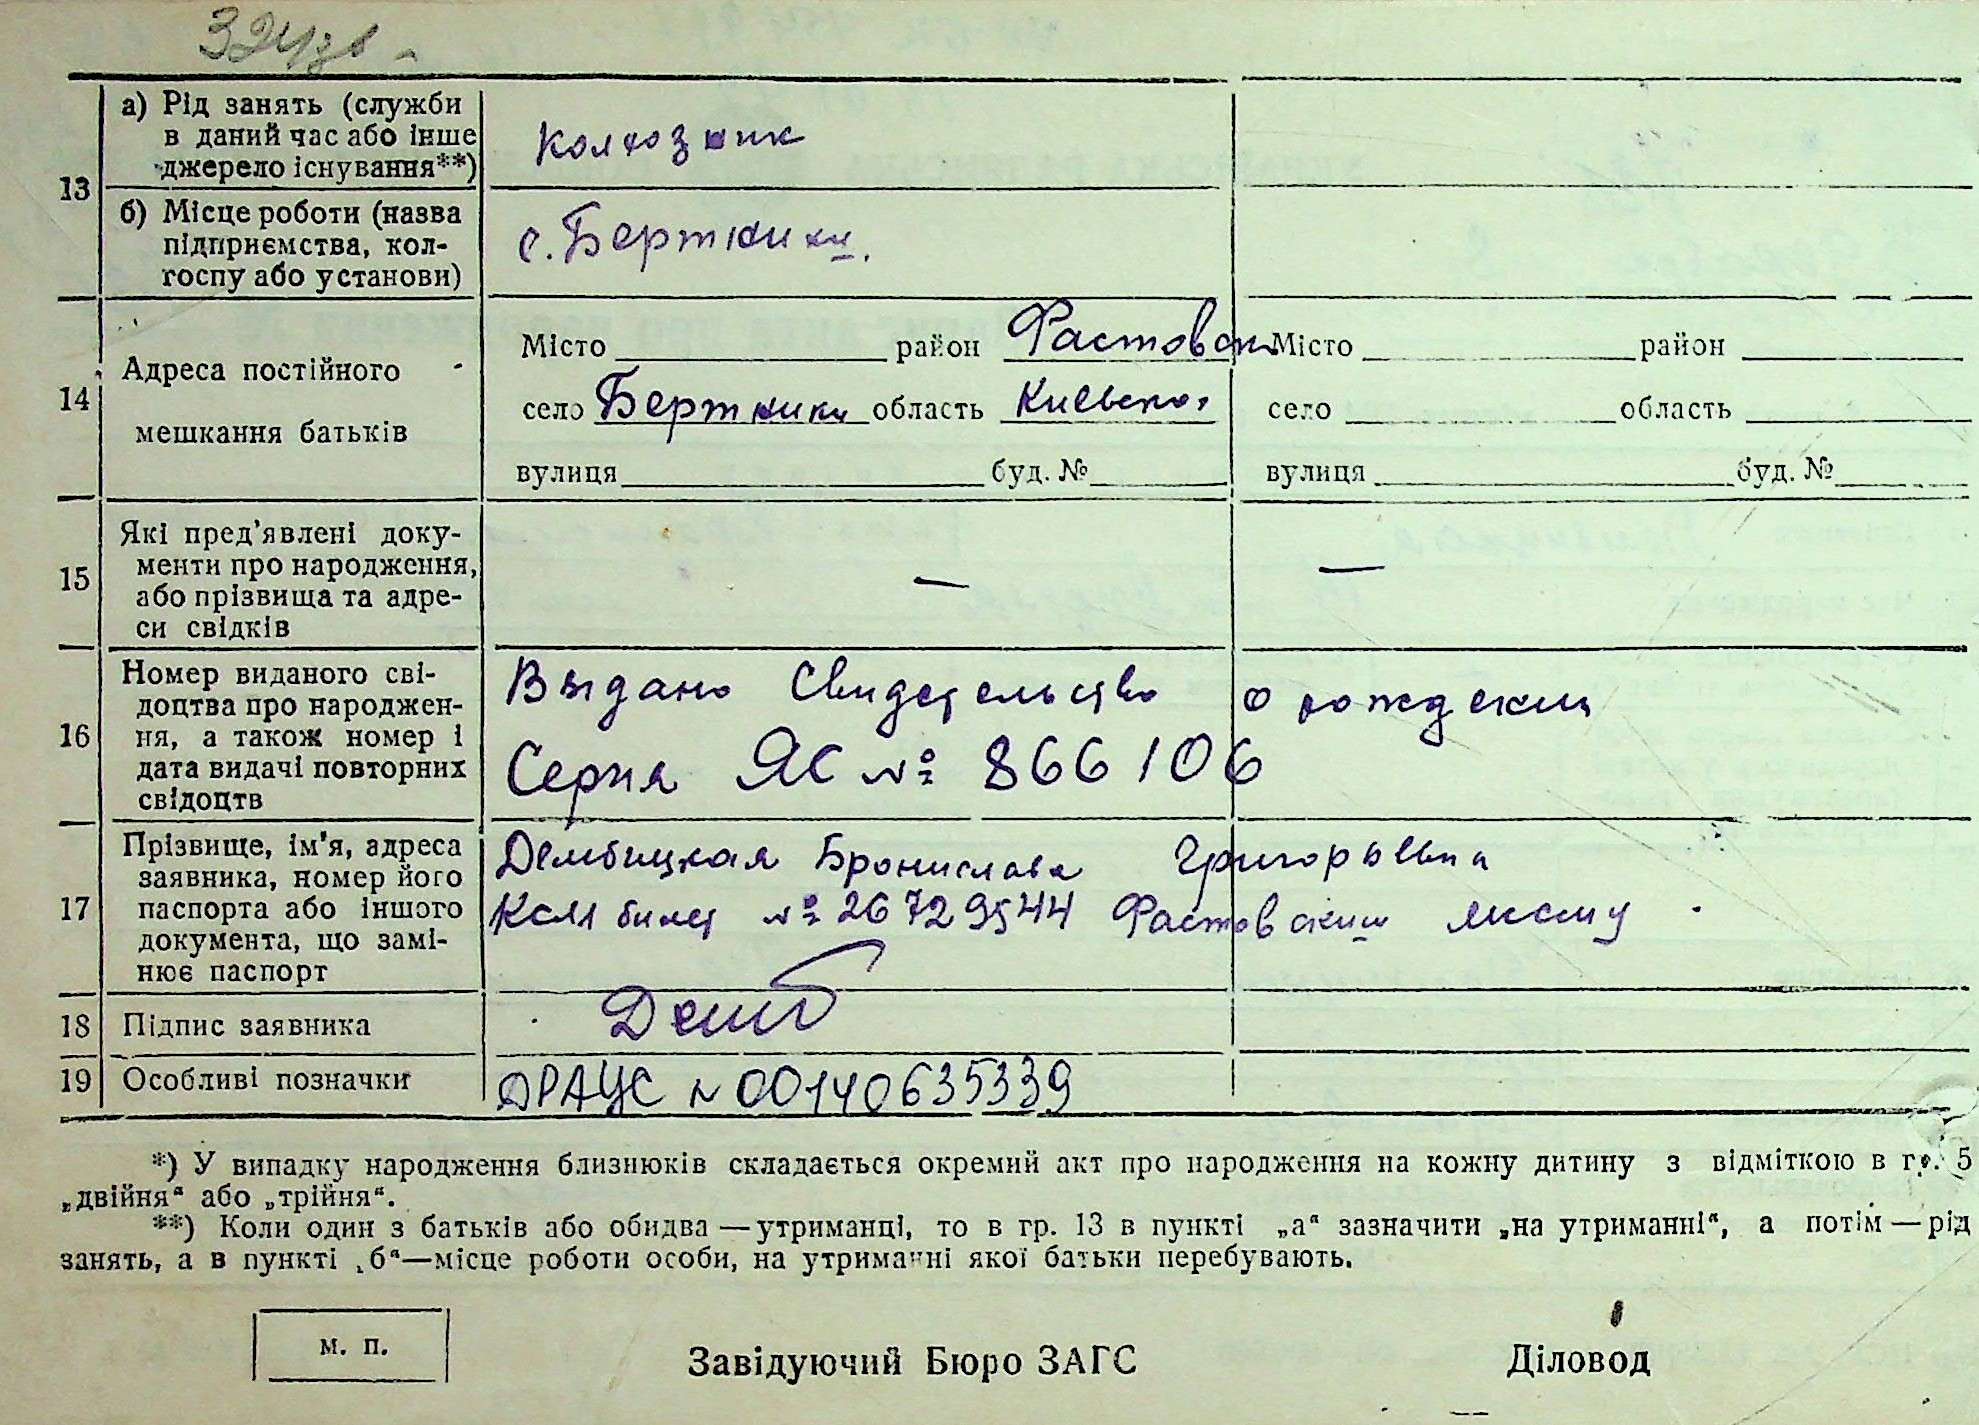 324зв
13
а) Рід занять (служби
в даний час або інше
джерело існування**)
Колхозник
б) Місце роботи (назва
підприємства, кол-
госпу або установи)
с. Бертники.
14
Адреса постійного
мешкання батьків
Місто район Фастовск
село Бертники область Киевская
вулиця буд. №
Місто район
село область
вулиця буд. №
15
Які пред'явлені доку-
менти про народження,
або прізвища та адре-
си свідків
—
—
16
Номер виданого сві-
доцтва про народжен-
ня, а також номер і
дата видачі повторних
свідоцтв
Выдано Свидетельство о рождении
Серия ЯС № 866106
17
Прізвище, ім'я, адреса
заявника, номер його
паспорта або іншого
документа, що замі-
нює паспорт
Дембицкая Бронислава Григорьевна
Ком билет № 26729544 Фастовским
18
Підпис заявника
Демб
19
Особливі позначки
ДРАЦС N 00140635339
*) У випадку народження близнюків складається окремий акт про народження на кожну дитину з відміткою в гр. 5
„двійня“ або „трійня“.
**) Коли один з батьків або обидва — утриманці, то в гр. 13 в пункті „а“ зазначити „на утриманні“, а потім — рід
занять, а в пункті „б“—місце роботи особи, на утриманні якої батьки перебувають.
м. п.
Завідуючий Бюро ЗАГС
Діловод